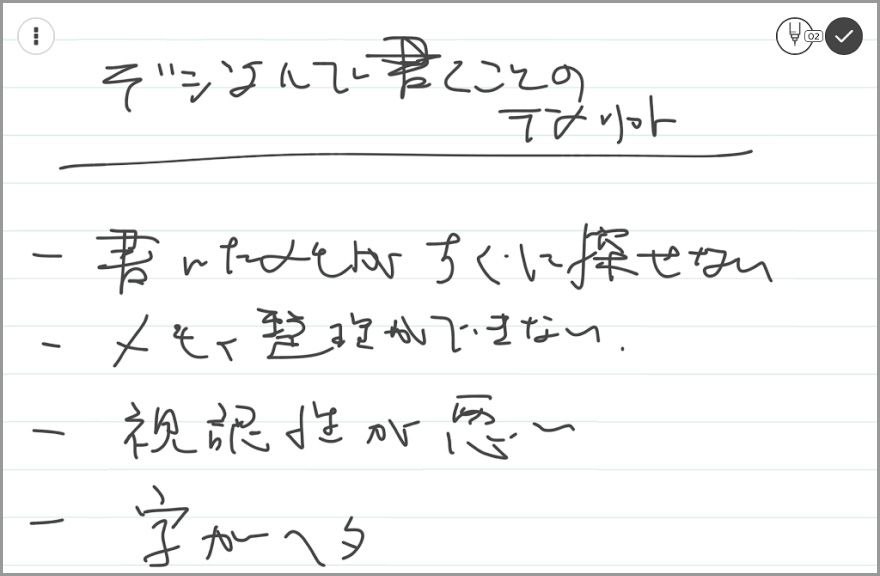 デジタルで書くことの
デメリット
- 書いたメモがすぐに探せない
- メモて整理ができない.
- 視認性が悪い
- 字がヘタ
02